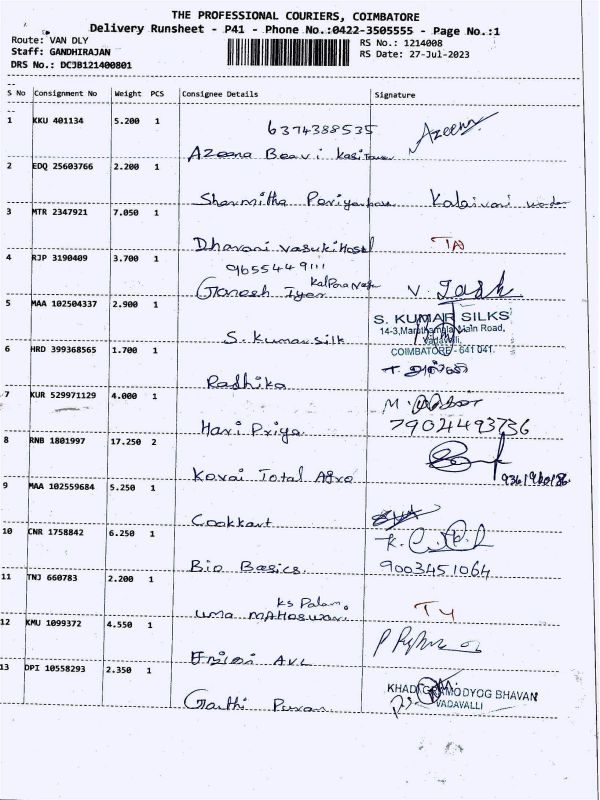 THE PROFESSIONAL COURIERS, COIMBATORE
Delivery Runsheet - P41 - Phone No.:0422-3505555 - Page No.:1
Route: VAN DLY
RS No.: 1214008
Staff: GANDHIRAJAN
RS Date: 27-Jul-2023
DRS No.: DCJB121400801
S No Consignment No Weight PCS Consignee Details Signature
1 KKU 401134 5.200 1
6374388535 Azeena
Azeena Beavi
2 EDQ 25603766 2.200 1
Sharmitha
3 MTR 2347921 7.050 1
Dharani vasuki Hostel
4 RJP 3190409 3.700 1
9655449111
Ganesh Iyer V.
5 MAA 102504337 2.900 1
S. KUMAR SILKS
14-3,Maruthamalai Main Road,
Vadavalli,
S. Kumar silk COIMBATORE - 641 041.
6 HRD 399368565 1.700 1
Radhika
7 KUR 529971129 4.000 1
Hari Priya 79024493736
8 RNB 1801997 17.250 2
Kovai Total Agro
9 MAA 102559684 5.250 1
Cookkart
10 CNR 1758842 6.250 1
Bio Basics 9003451064
11 TNJ 660783 2.200 1
Ks Palam.
uma MAHESWARI
12 KMU 1099372 4.550 1
13 DPI 10558293 2.350 1
KHADI GRAMODYOG BHAVAN
VADAVALLI